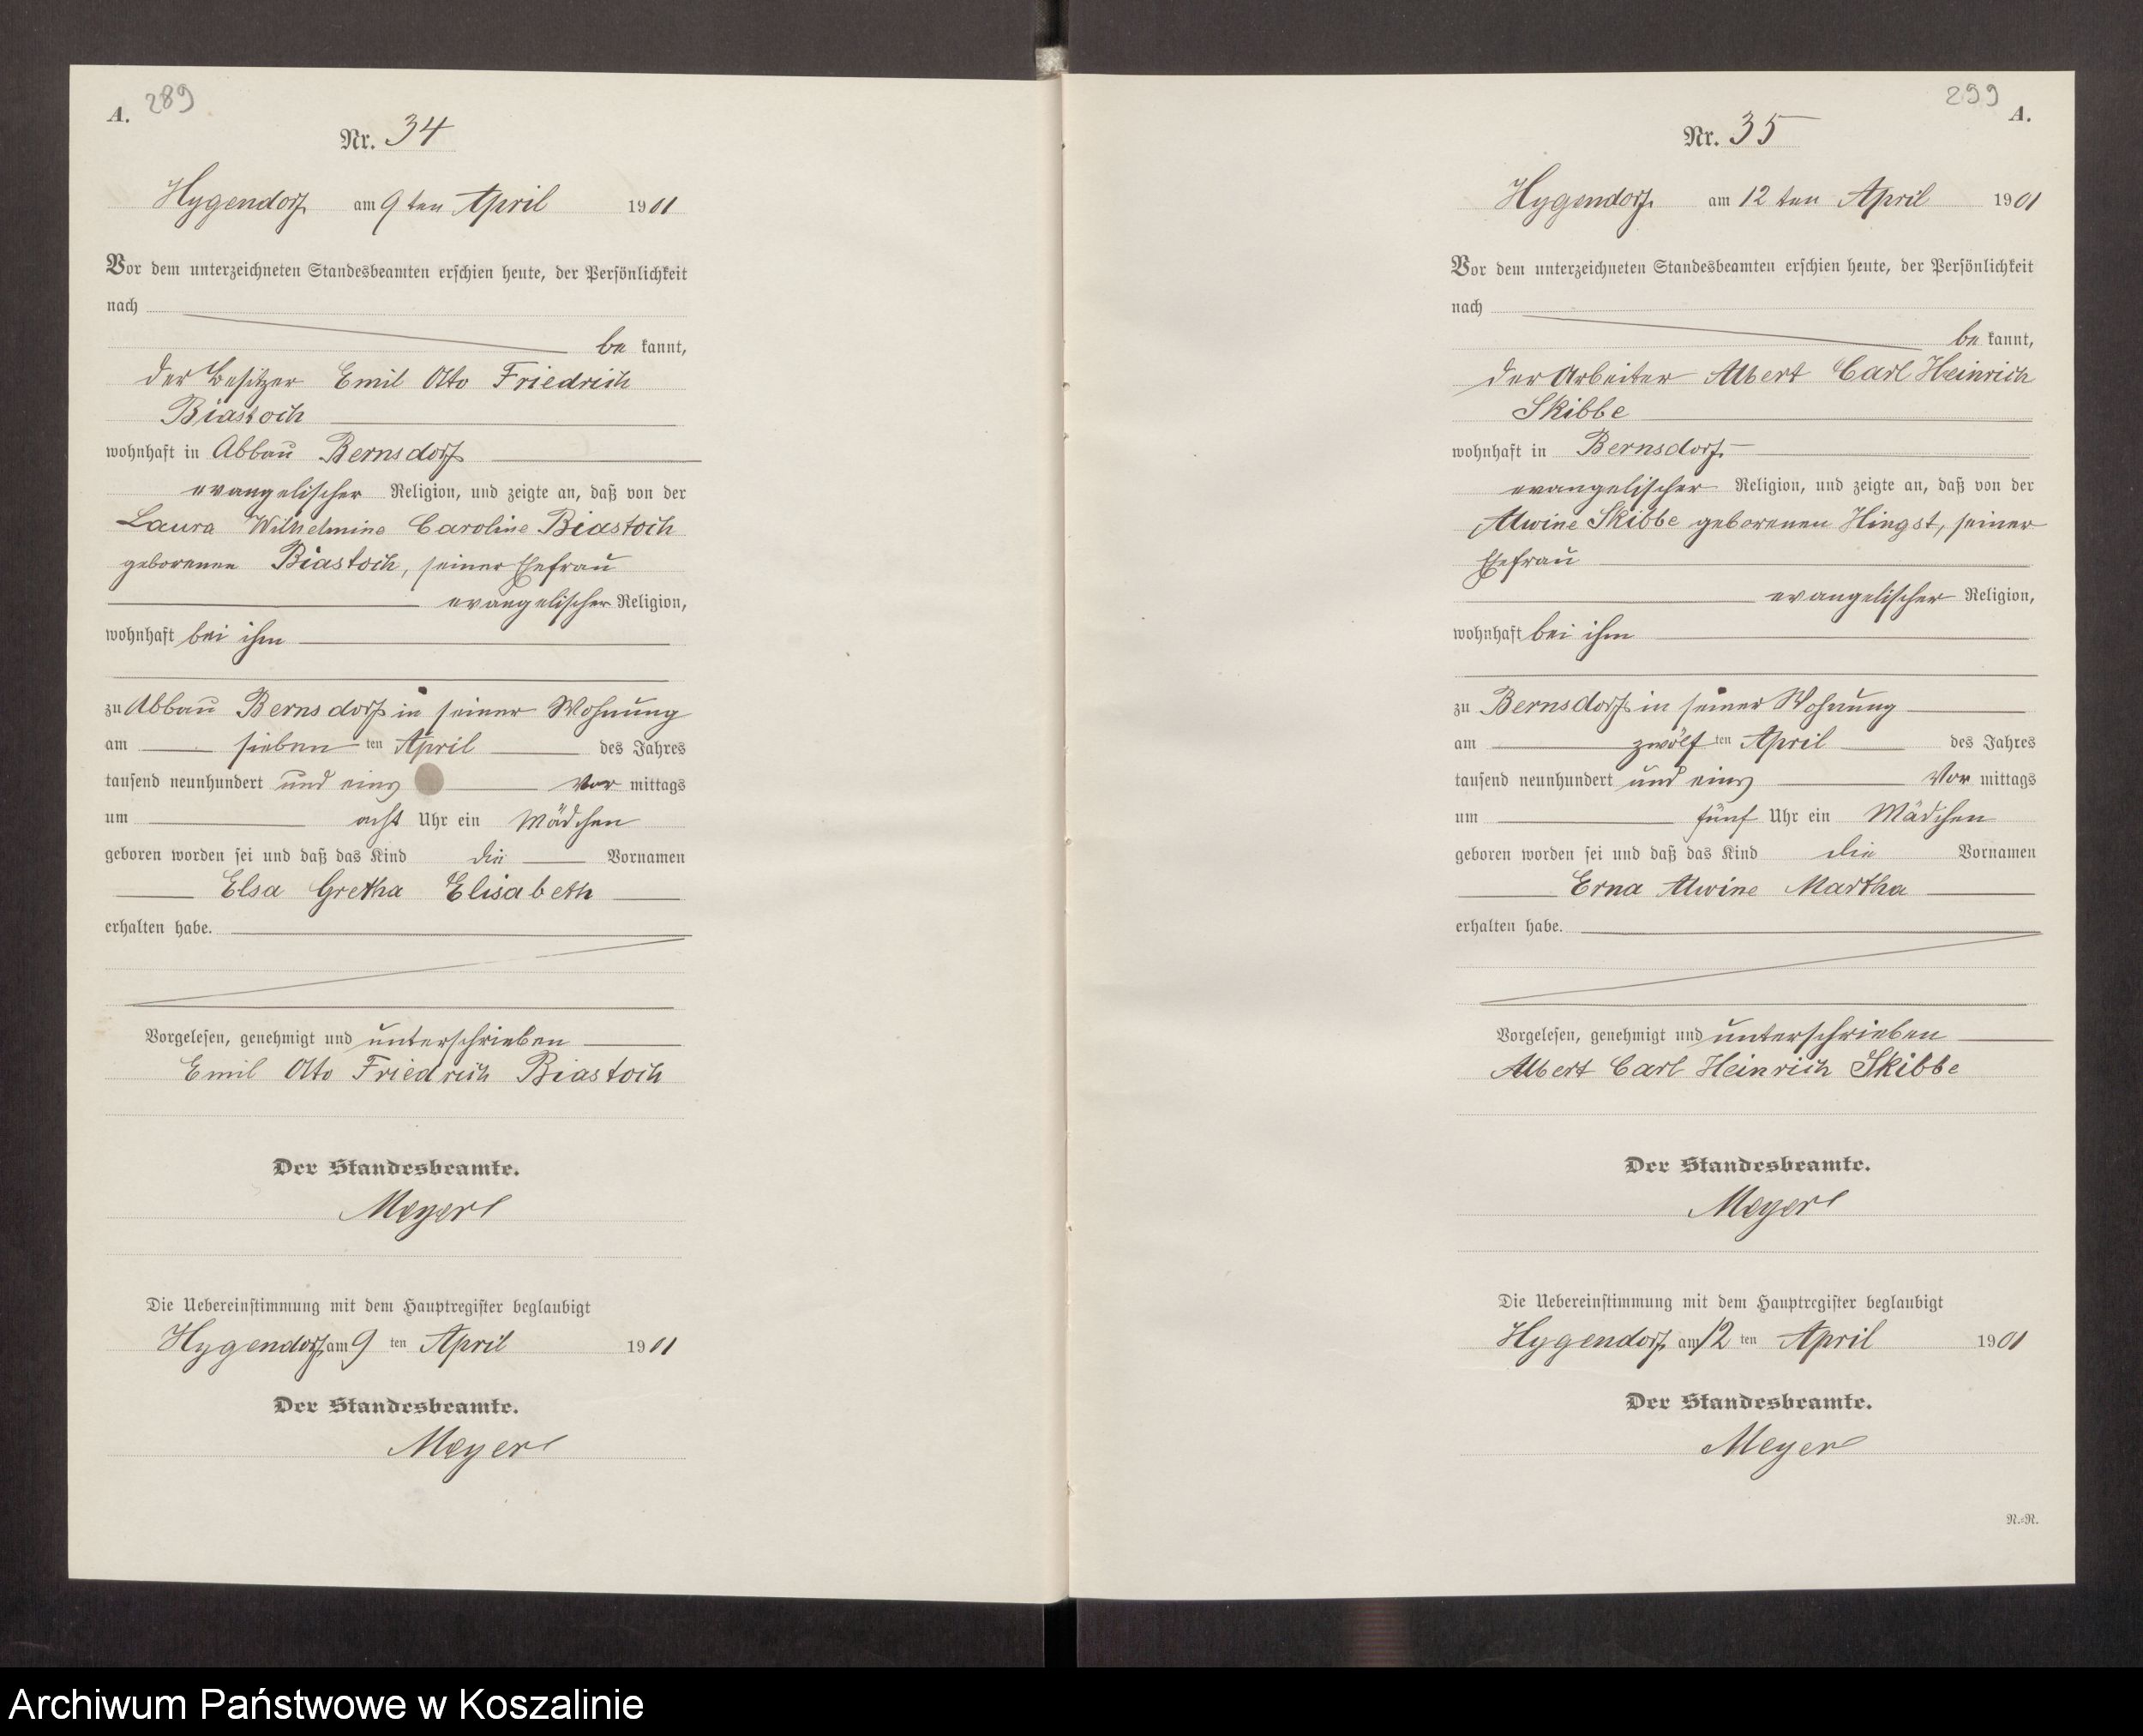 A. 289
Nr. 34
Hygendorf am 9ten April 1901
Vor dem unterzeichneten Standesbeamten erschien heute, der Persönlichkeit
nach
be kannt,
der Besitzer Emil Otto Friedrich
Biastoch
wohnhaft in Abbau Bernsdorf
evangelischer Religion, und zeigte an, daß von der
Laura Wilhelmine Caroline Biastoch
geborenen Biastoch, seiner Ehefrau
evangelischer Religion,
wohnhaft bei ihm
zu Abbau Bernsdorf in seiner Wohnung
am sieben ten April des Jahres
tausend neunhundert und eins Vor mittags
um acht Uhr ein Mädchen
geboren worden sei und daß das Kind die Vornamen
Elsa Gretha Elisabeth
erhalten habe.
Vorgelesen, genehmigt und unterschrieben
Emil Otto Friedrich Biastoch
Der Standesbeamte.
Meyer
Die Uebereinstimmung mit dem Hauptregister beglaubigt
Hygendorf am 9 ten April 1901
Der Standesbeamte.
Meyer
299 A.
Nr. 35
Hygendorf am 12 ten April 1901
Vor dem unterzeichneten Standesbeamten erschien heute, der Persönlichkeit
nach
be kannt,
der Arbeiter Albert Carl Heinrich
Skibbe
wohnhaft in Bernsdorf
evangelischer Religion, und zeigte an, daß von der
Alwine Skibbe geborenen Hingst, seiner
Ehefrau
evangelischer Religion,
wohnhaft bei ihm
zu Bernsdorf in seiner Wohnung
am zwölf ten April des Jahres
tausend neunhundert und eins Vor mittags
um fünf Uhr ein Mädchen
geboren worden sei und daß das Kind die Vornamen
Erna Alwine Martha
erhalten habe.
Vorgelesen, genehmigt und unterschrieben
Albert Carl Heinrich Skibbe
Der Standesbeamte.
Meyer
Die Uebereinstimmung mit dem Hauptregister beglaubigt
Hygendorf am 12 ten April 1901
Der Standesbeamte.
Meyer
N.=N.
Archiwum Państwowe w Koszalinie